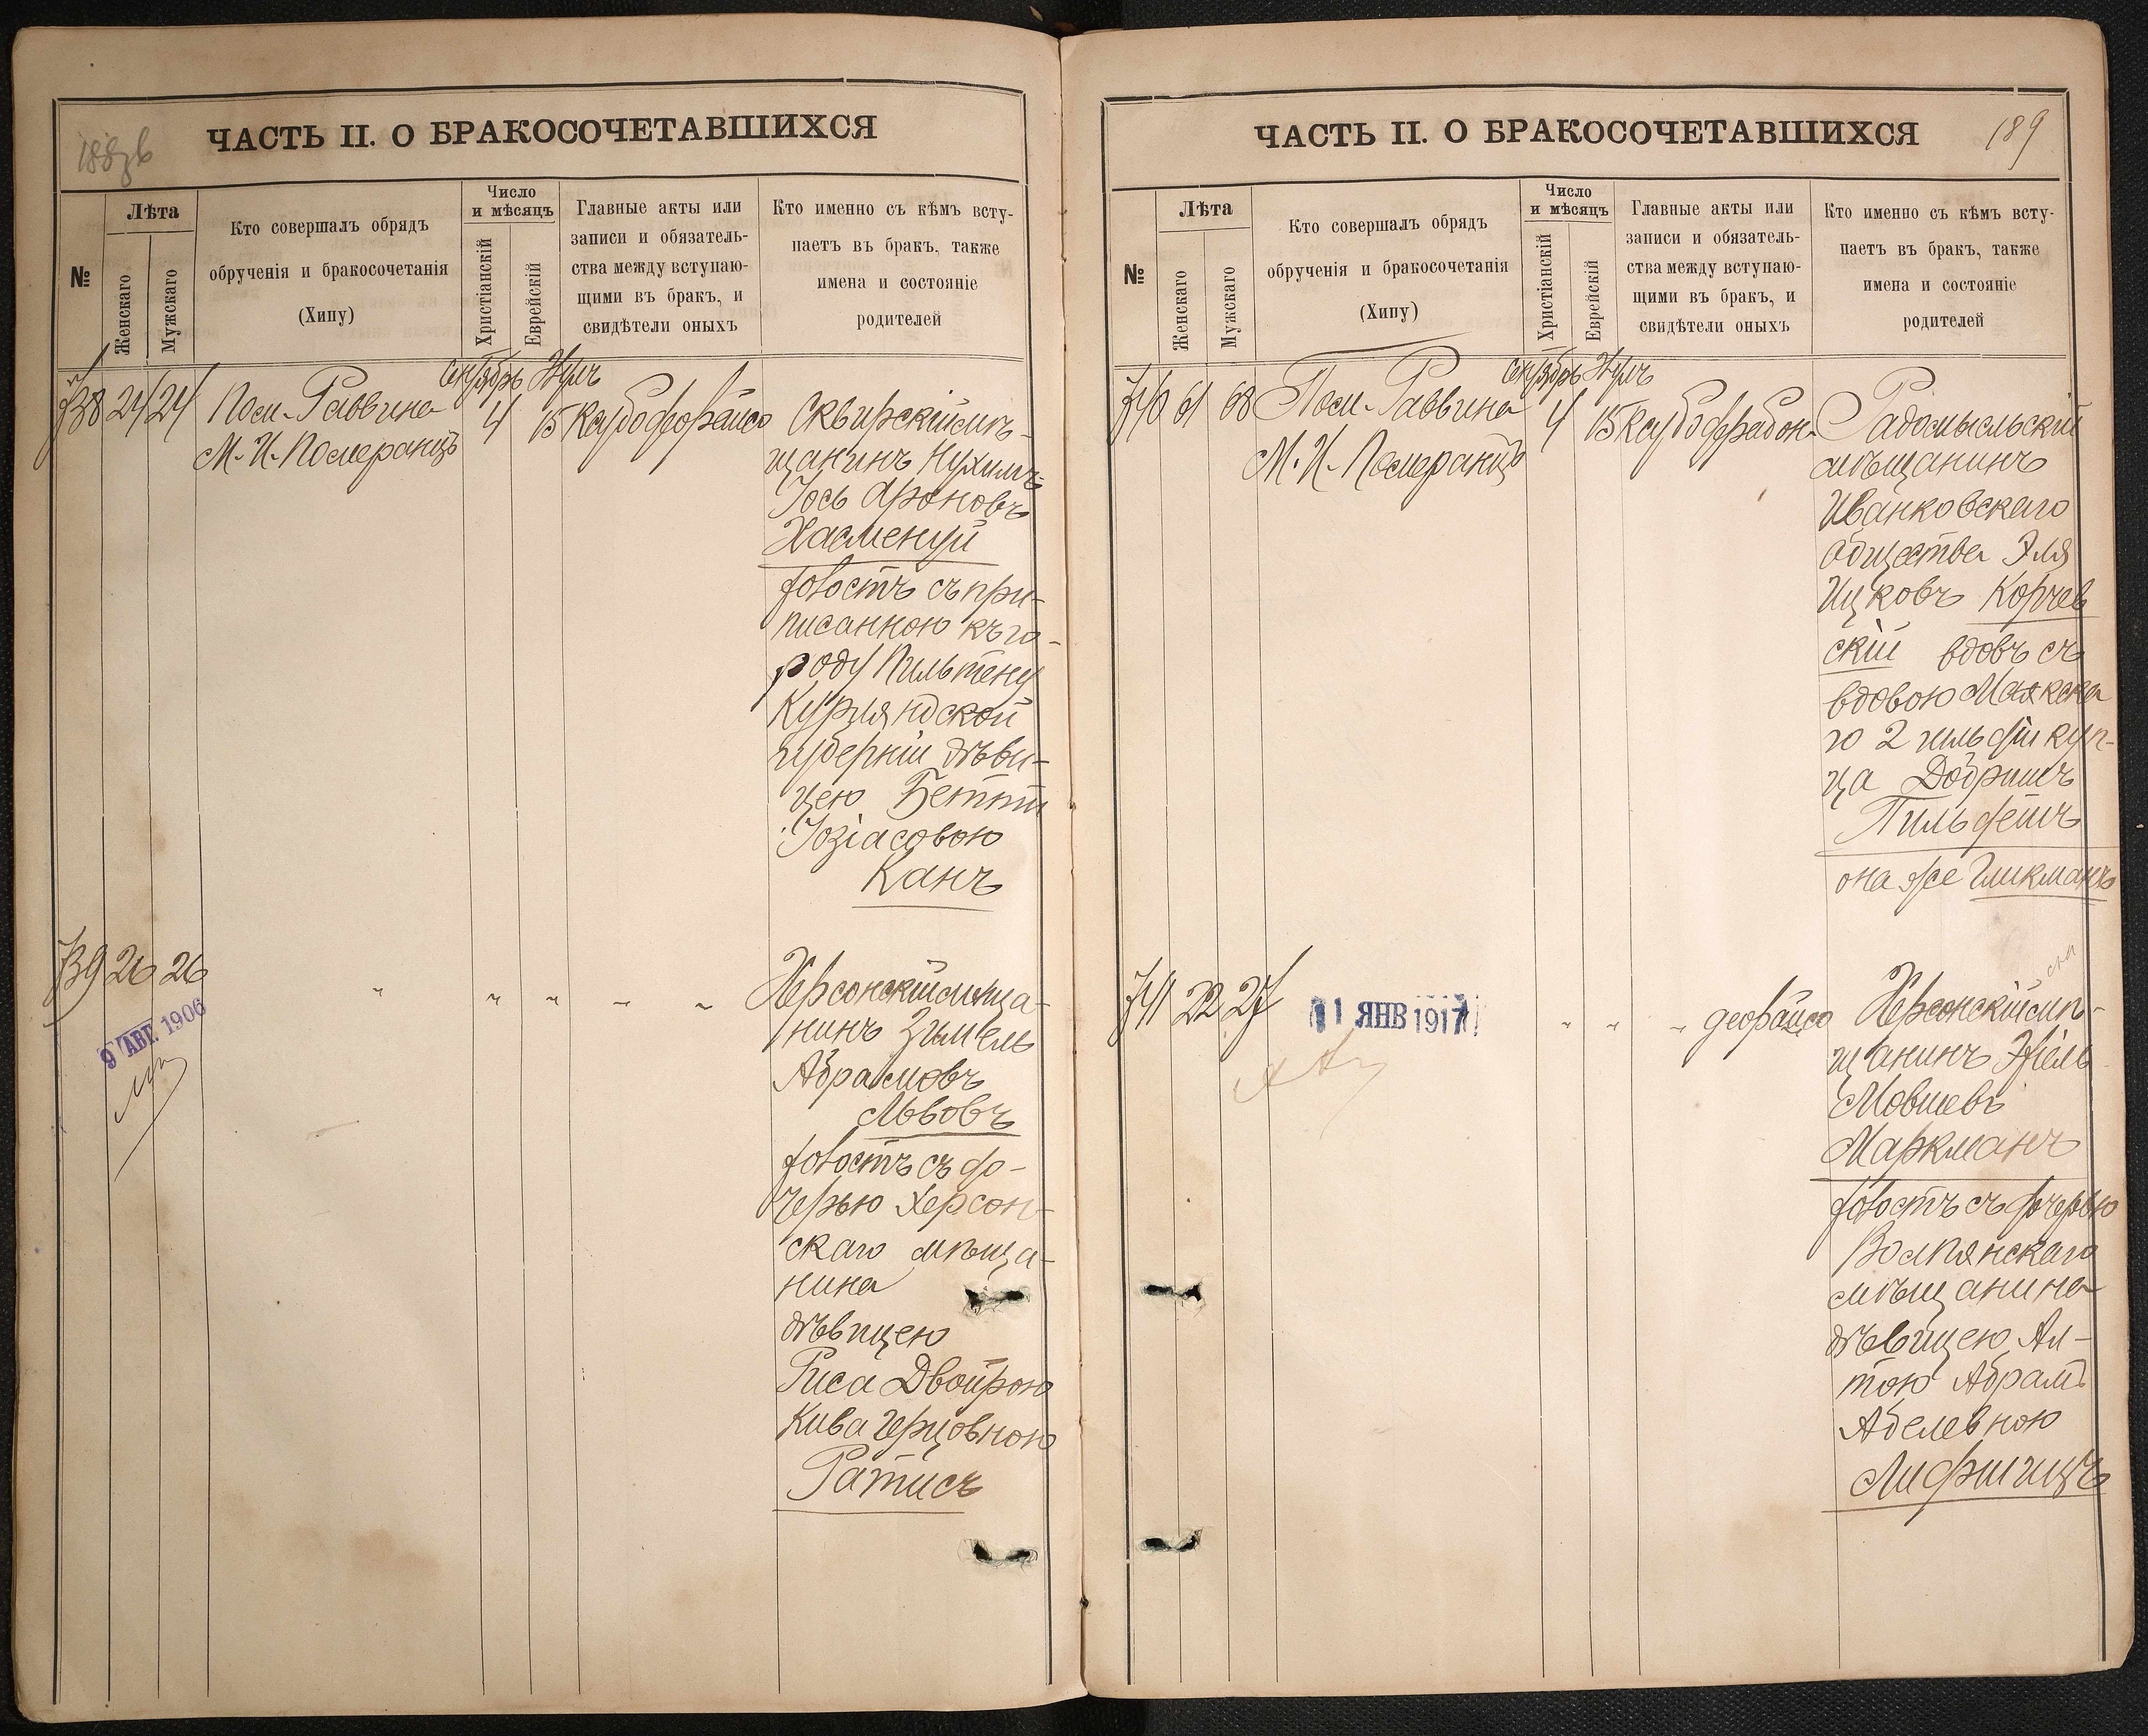 ЧАСТЬ II. О БРАКОСОЧЕТАВШИХСЯ
№
Лѣта
Женскаго
Мужскаго
Кто совершалъ обрядъ
обрученія и бракосочетанія
(Хипу)
Число
и мѣсяцъ
Христіанскій
Еврейскій
Главные акты или
записи и обязатель-
ства между вступаю-
щими въ бракъ, и
свидѣтели оныхъ
Кто именно съ кѣмъ всту-
паетъ въ бракъ, также
имена и состояніе
родителей
738 24 24
Пом. Раввина
М. И. Померанцъ
4
15
Сквирскій мѣ-
щанинъ Нухимъ
Іось Ароновъ
Хасменуй
холостъ съ при-
писанною къ го-
роду Пильтену
Курляндской
губерніи дѣви-
цею Бетти
Іозіасовою
Канъ
739 26 26
9 АВГ. 1906
" " " " "
Херсонскій мѣща-
нинъ Зимель
Абрамовъ
Львовъ
холостъ съ до-
черью Херсон-
скаго мѣща-
нина
дѣвицею
Риса Двойрою
Кива Герцовною
Ратисъ
ЧАСТЬ II. О БРАКОСОЧЕТАВШИХСЯ
189
№
Лѣта
Женскаго
Мужскаго
Кто совершалъ обрядъ
обрученія и бракосочетанія
(Хипу)
Число
и мѣсяцъ
Христіанскій
Еврейскій
Главные акты или
записи и обязатель-
ства между вступаю-
щими въ бракъ, и
свидѣтели оныхъ
Кто именно съ кѣмъ всту-
паетъ въ бракъ, также
имена и состояніе
родителей
740 61 68
Пом. Раввина
М. И. Померанцъ
4
15
Радомысльскій
мѣщанинъ
Иванковскаго
общества Эля
Ицковъ Корчев
скій вдовъ съ
вдовою Маякска
го 2 гильдіи куп-
ца Добришъ
Гильфетъ
она же Гликманъ
741 22 27
11 ЯНВ 1917
" " "
Херсонскій мѣ-
щанинъ Эхіель
Мовшевъ
Маркманъ
холостъ съ дочерью
Волпянскаго
мѣщанина
дѣвицею Ал-
тою Абрамъ
Абелевною
Лифшицъ